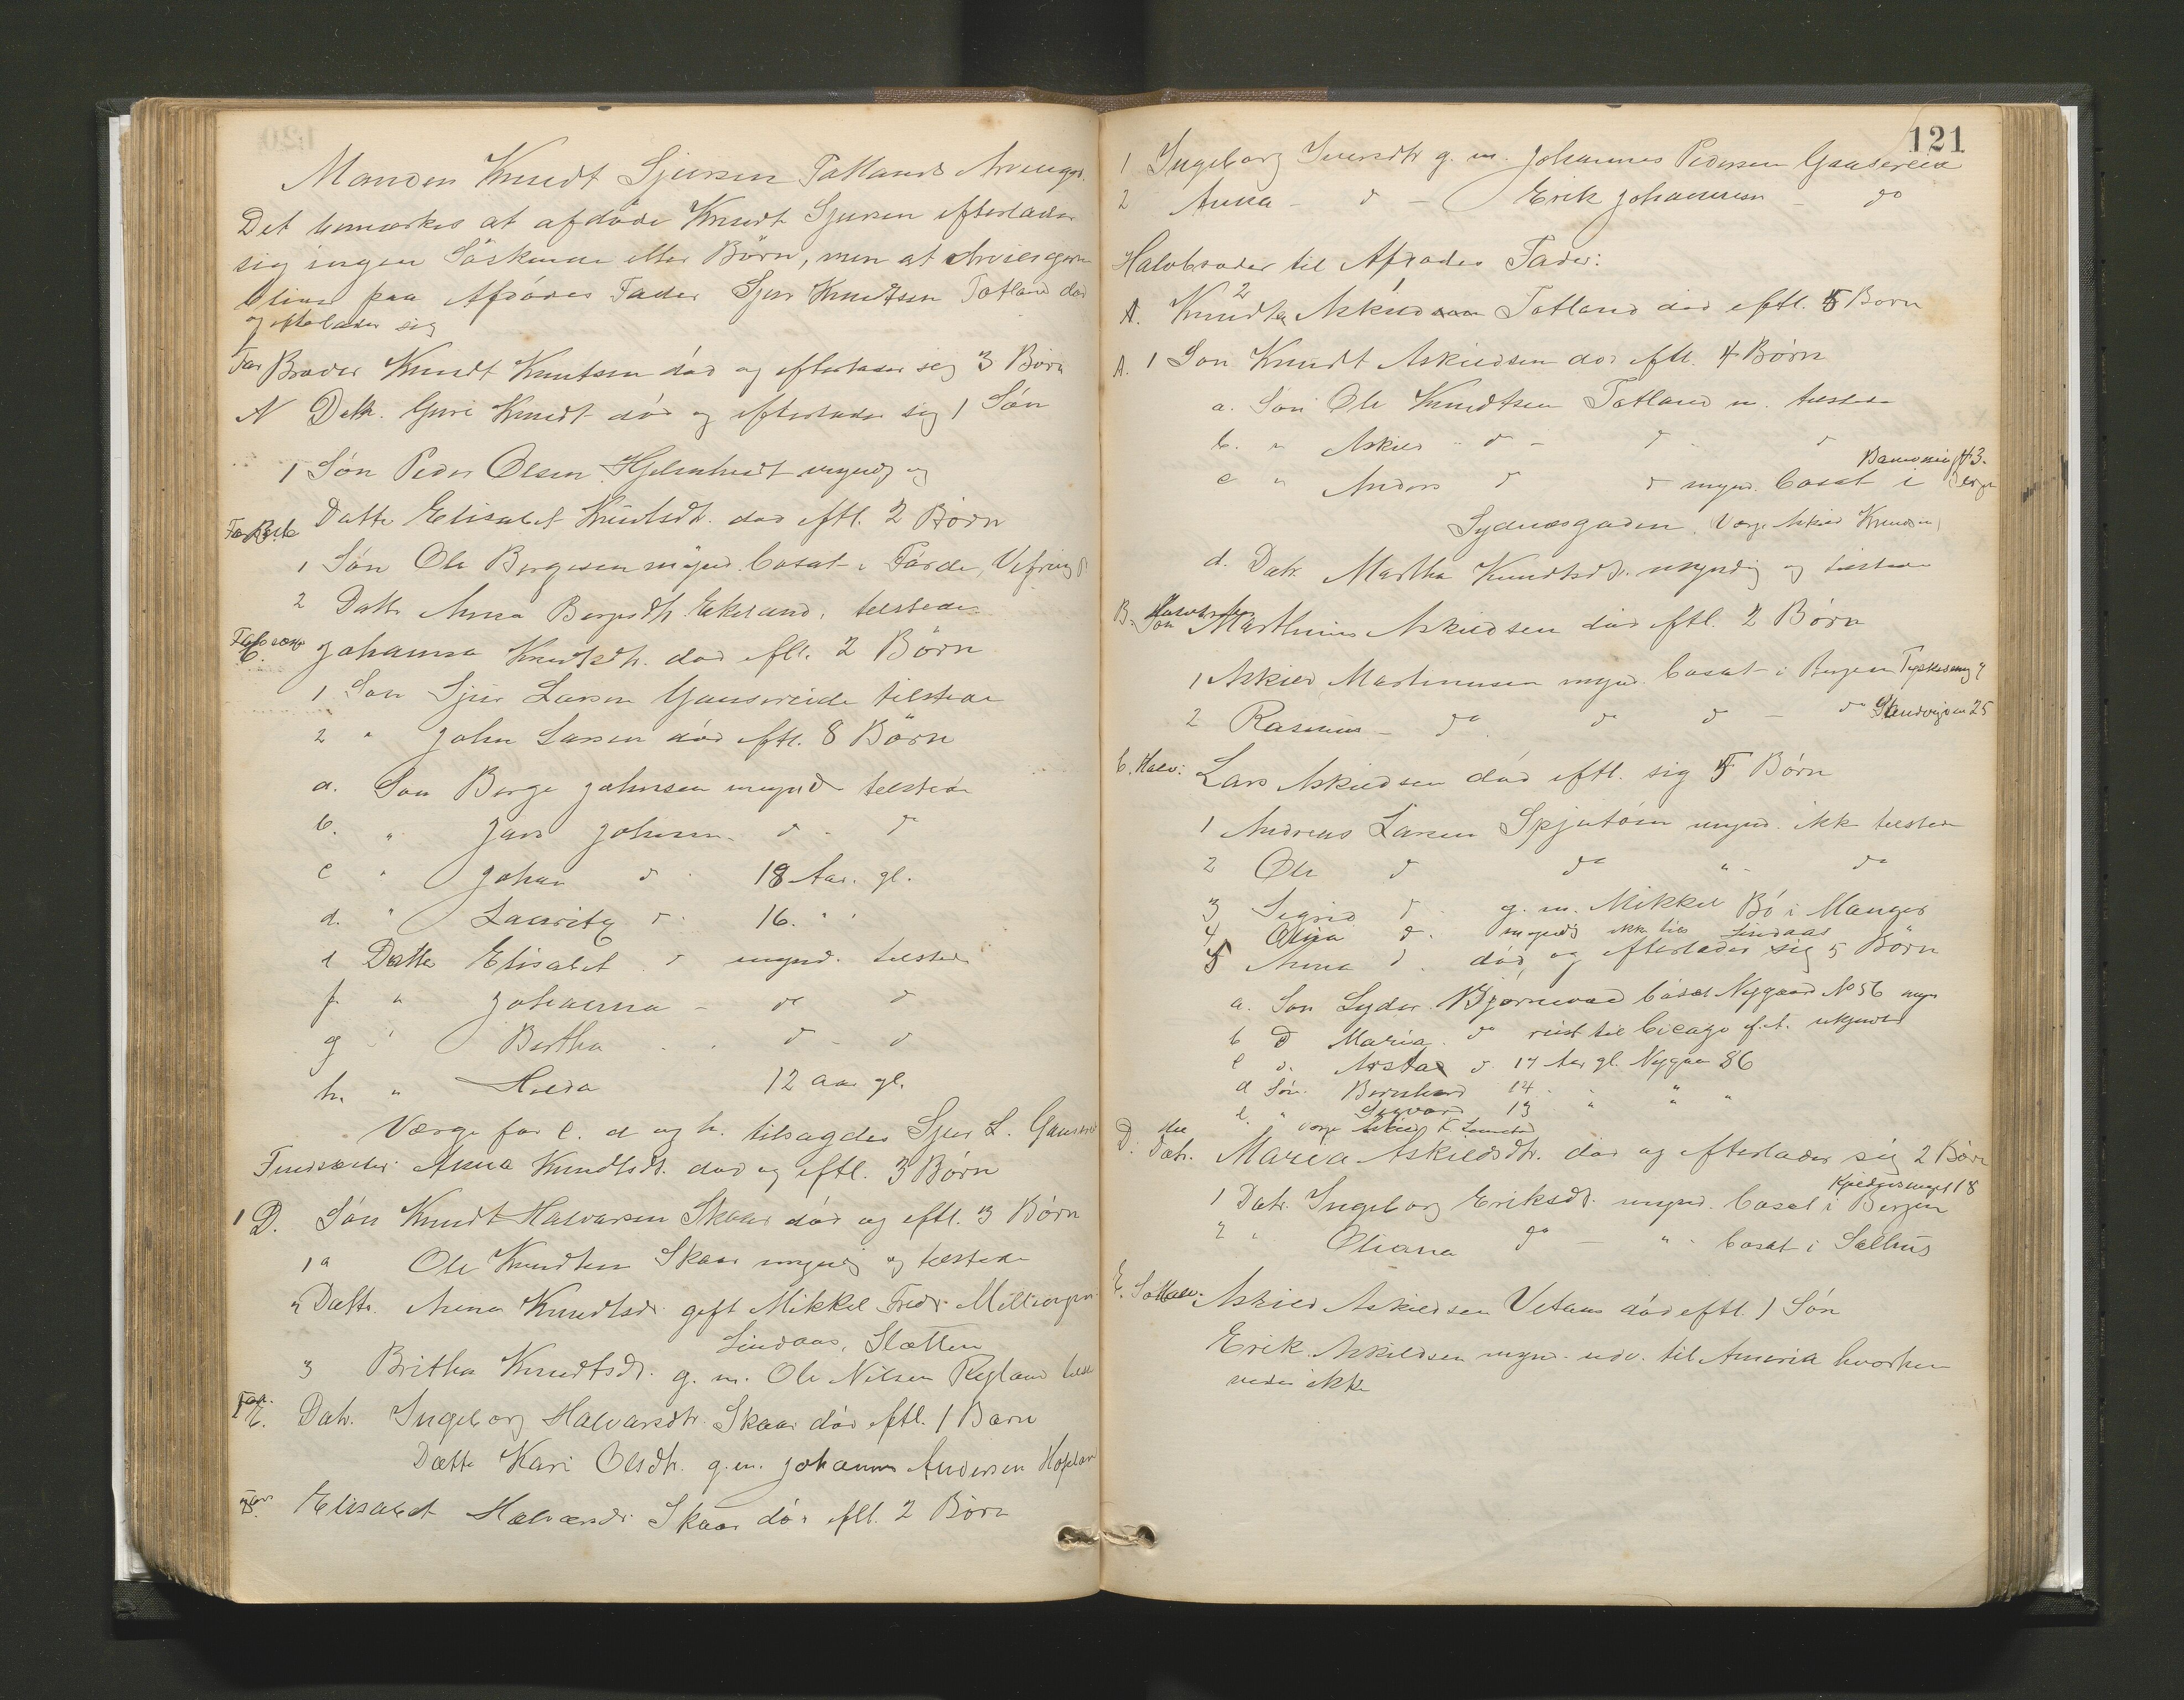 Manden Knudt Sjursen Totlands Arvinger.
Det bemærkes at afdøde Knudt Sjursen efterlader
sig ingen Söskende eller Börn, men at Arvingerne
bliver paa Afdødes Fader Sjur Knudtsen Totland død
og efterlader sig
Far Broder Knudt Knutsen död og efterlader sig 3 Börn
A Datr. Guri Knudt död og efterlader sig 1 Sön
1 Sön Peder Olsen Hjelmtvedt myndig
B. Datter Elisabet Knutsdtr. død eftl. 2 Börn
1 Sön Ole Børgesen mynd. bosat i Förde, Vefring
2 Dattr Anna Børgesdtr. Ekeland, tilstede
C. Johanna Knutsdtr. død eftl. 2 Börn
1 Søn Sjur Larsen Gausereide tilstede
2 " John Larsen död eftl. 8 Börn
a. Søn Børge Johnsen mynd tilstede
b. " Jars Johnsen - d - d
c " Johan d 18 Aar. gl.
d. " Lauritz d. 16. " "
e Datter Elisabet d mynd. tilstede
f " Johanna - do d
g " Bertha . . d - d
h. " Hilda 12 aar gl.
Værge for c. d og h. tilsagdes Sjur L. Gausereid
Anna Knudtsdt. død og eftl. 3 Börn
1 D. Sön Knudt Halvorsen Skaar død og eftl. 3 Börn
1 a Ole Knudtsen Skaar myndig og tilstede
2 Dattr. Anna Knudtsdr. gift Mikkel Fredr.
Lindaas, Sletten
3 Britha Knudtsdr. g. m. Ole Nilsen Ryland
Far. E. Datr. Ingeborg Halvorsdtr. Skaar död eftl. 1 Barn
Datter Kari Olsdtr. g.m. Johannes Andersen Hopland
Elisabet Halvorsdr. Skaar dö. eftl. 2 Börn
121
1 Ingeborg Iversdtr g. m. Johannes Pedersen Gausereid
2 Anna - d - Erik Johannesen - do
Halvbroder til Afdødes Fader:
A. Knudt Askild Totland død eftl. 5 Børn
A. 1 Søn Knudt Askildsen død eftl. 4 Børn
a. Søn Ole Knudtsen Totland m. tilstede
b. " Askild - d - d d
c " Anders d d mynd. bosat i Bergen
Sydnæsgaden. (Værge Askild Knudsen)
d. Datr. Martha Knudtsdtr. myndig og tilstede
B. Søn Marthinus Askildsen död eftl. 2 Börn
1 Askild Martinusen mynd. bosat i Bergen
2 Rasmus - do do d - do Sandvigen 25
C. Halv: Lars Askildsen död eftl. sig 5 Börn
1 Andreas Larsen Spjutöen mynd. ikke tilstede
2 Ole d do " do
3 Sigrid d g. m. Mikkel Bö i Manger
4 Olina d. myndig ikke tils Lindaas
5 Anna d. död, og efterlader sig 5 Börn
a. Søn Lyder Bjørnevad bosat Nygaard No 56
b D Maria do reist til Cicago
c D. d 17 Aar gl. Nygaa 86
d Søn. Bernhard 14 " " "
e. " 13 " "
Værge Askild K.
D. Datr. Maria Askildsdtr. død og efterlader sig 2 Børn
1 Datr. Ingeborg Eriksdt. mynd. bosat i Bergen
2 " Oliana do - " - bosat i Salhus
E. Halv. Askild Askildsen Vetaas død eftl. 1 Søn
Erik Askildsen mynd. udv. til Ameria hvorhen
vides ikke